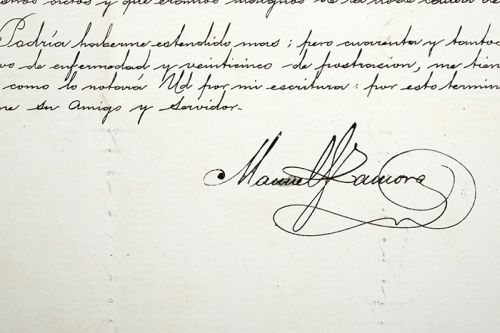 y que éramos indignos de la
Podría haberme estendido mas; pero cuarenta y tantos
vo de enfermedad y veinticinco de postracion, me tien
como lo notará Ud por mi escritura: por esto termin
me su Amigo y Servidor.
Manuel J Zamora